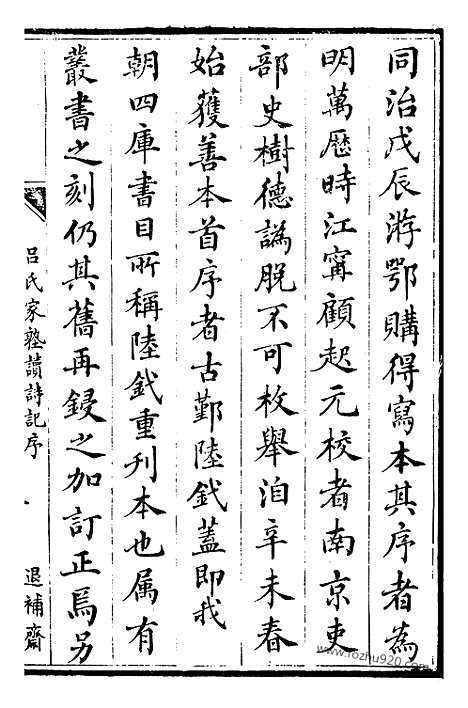 同治戊辰游鄂購得寫本其序者為
明萬歷時江寗顧起元校者南京吏
部史樹德譌脫不可枚舉洎辛未春
始獲善本首序者古鄞陸釴蓋即我
朝四庫書目所稱陸釴重刊本也属有
叢書之刻仍其舊再鋟之加訂正焉另
呂氏家塾讀詩記序
退補齋
www.fozhu920.com